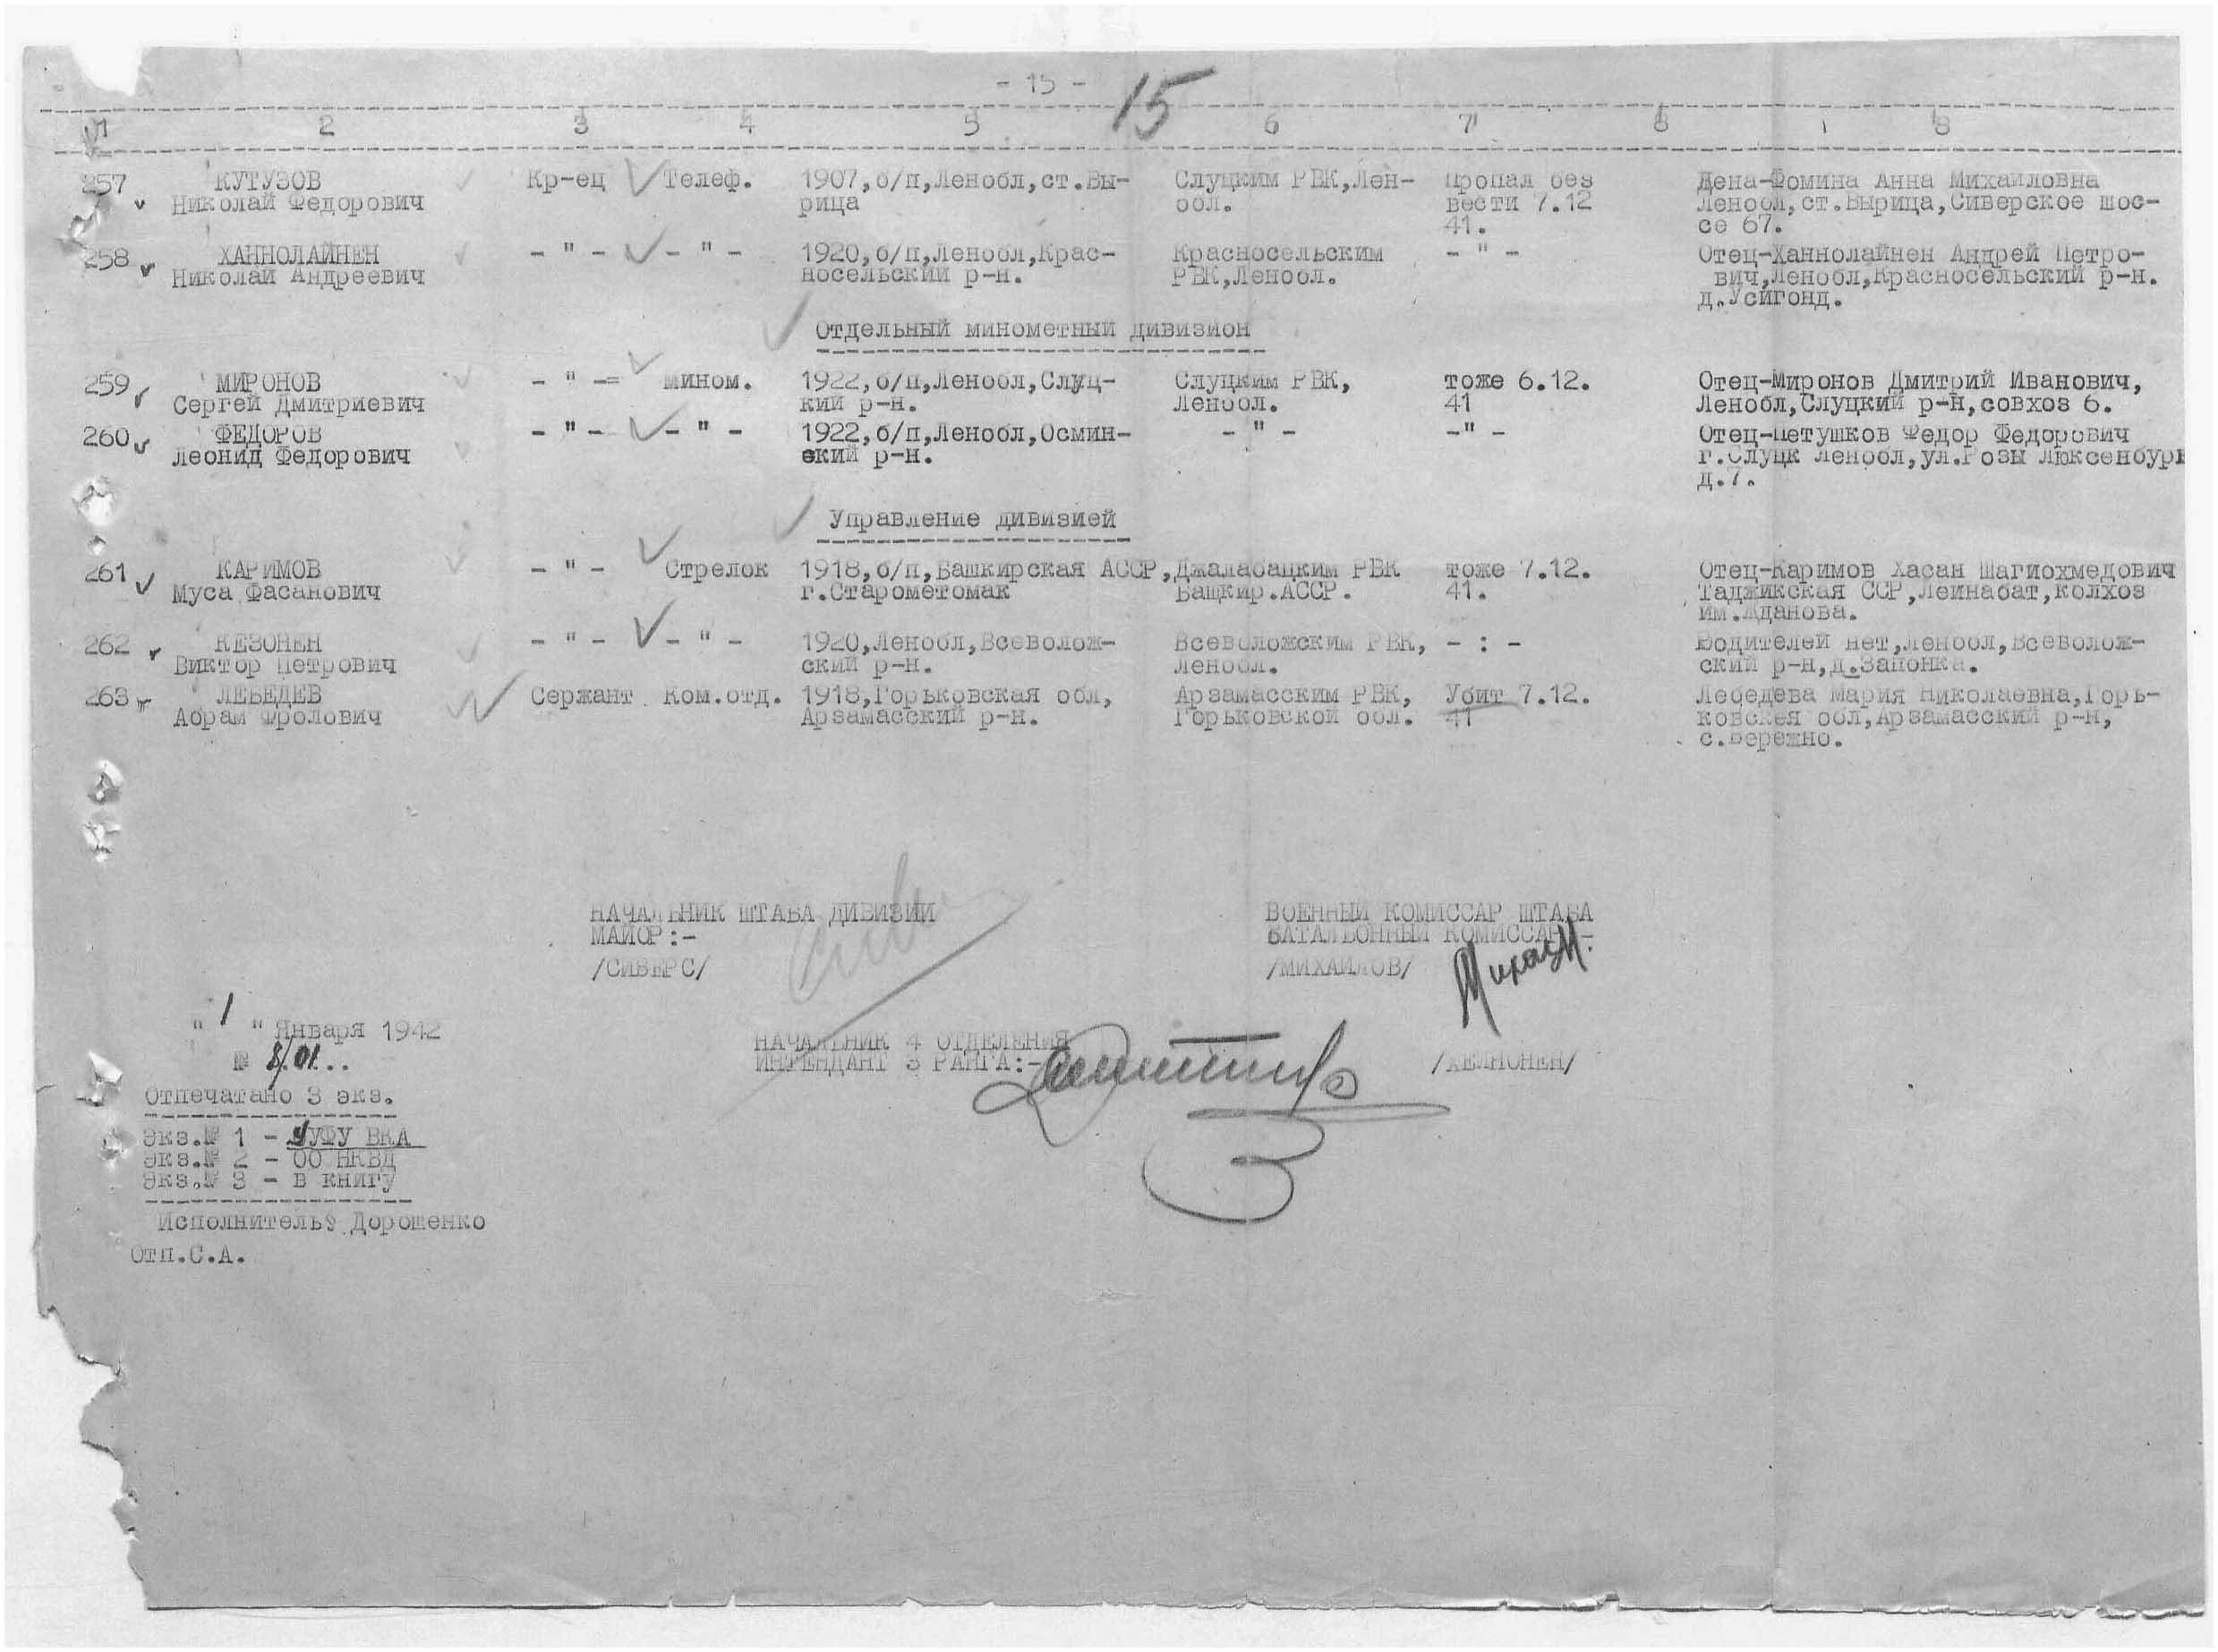 - 15 -
15
1 2 3 4 5 6 7 8 8
257 КУТУЗОВ Кр-ец Телеф. 1907,б/п,Ленобл,ст.Вы- Слуцким РВК,Лен- пропал без Дена-Фомина Анна Михайловна
Николай Федорович рица обл. вести 7.12 Ленобл,ст.Вырица,Сиверское шос-
41. се 67.
258 ХАННОЛАЙНЕН - " - - " - 1920,б/п,Ленобл,Крас- Красносельским - " - Отец-Ханнолайнен Андрей Петро-
Николай Андреевич носельский р-н. РВК,Ленобл. вич,Ленобл,Красносельский р-н.
д.Усигонд.
Отдельный минометный дивизион
259 МИРОНОВ - " -= мином. 1922,б/п,Ленобл,Слуц- Слуцким РВК, тоже 6.12. Отец-Миронов Дмитрий Иванович,
Сергей Дмитриевич кий р-н. Ленобл. 41 Ленобл,Слуцкий р-н,совхоз 6.
260 ФЕДОРОВ - " - - " - 1922,б/п,Ленобл,Осмин- - " - -" - Отец-Петушков Федор Федорович
Леонид Федорович ский р-н. г.Слуцк Ленобл,ул.Розы Люксенбург
д.7.
Управление дивизией
261 КАРИМОВ - " - Стрелок 1918,б/п,Башкирская АССР,Джалабацким РВК тоже 7.12. Отец-Каримов Хасан Шагиохмедович
Муса Фасанович г.Старометомак Башкир.АССР. 41. Таджикская ССР,Лейнабат,колхоз
им.Жданова.
262 КЕЗОНЕН - " - - " - 1920,Ленобл,Всеволож- Всеволожским РВК, - : - Водителей нет,Ленобл,Всеволож-
Виктор Петрович ский р-н. Ленобл. ский р-н,д.Запонка.
263 ЛЕБЕДЕВ Сержант Ком.отд. 1918,Горьковская обл, Арзамасским РВК, Убит 7.12. Лебедева Мария Николаевна,Горь-
Абрам Фролович Арзамасский р-н. Горьковской обл. 41 ковская обл,Арзамасский р-н,
с.Бережно.
НАЧАЛЬНИК ШТАБА ДИВИЗИИ ВОЕННЫЙ КОМИССАР ШТАБА
МАЙОР:- БАТАЛЬОННЫЙ КОМИССАР:-
/СИВЕРС/ /МИХАЙЛОВ/
" 1 " Января 1942
№ 8/01..
НАЧАЛЬНИК 4 ОТДЕЛЕНИЯ
ИНТЕНДАНТ 3 РАНГА:- /ХЕЙНОНЕН/
Отпечатано 3 экз.
Экз.№ 1 - УУФУ ВКА
Экз.№ 2 - ОО НКВД
Экз.№ 3 - в книгу
Исполнитель: Дорошенко
Отп.С.А.
3